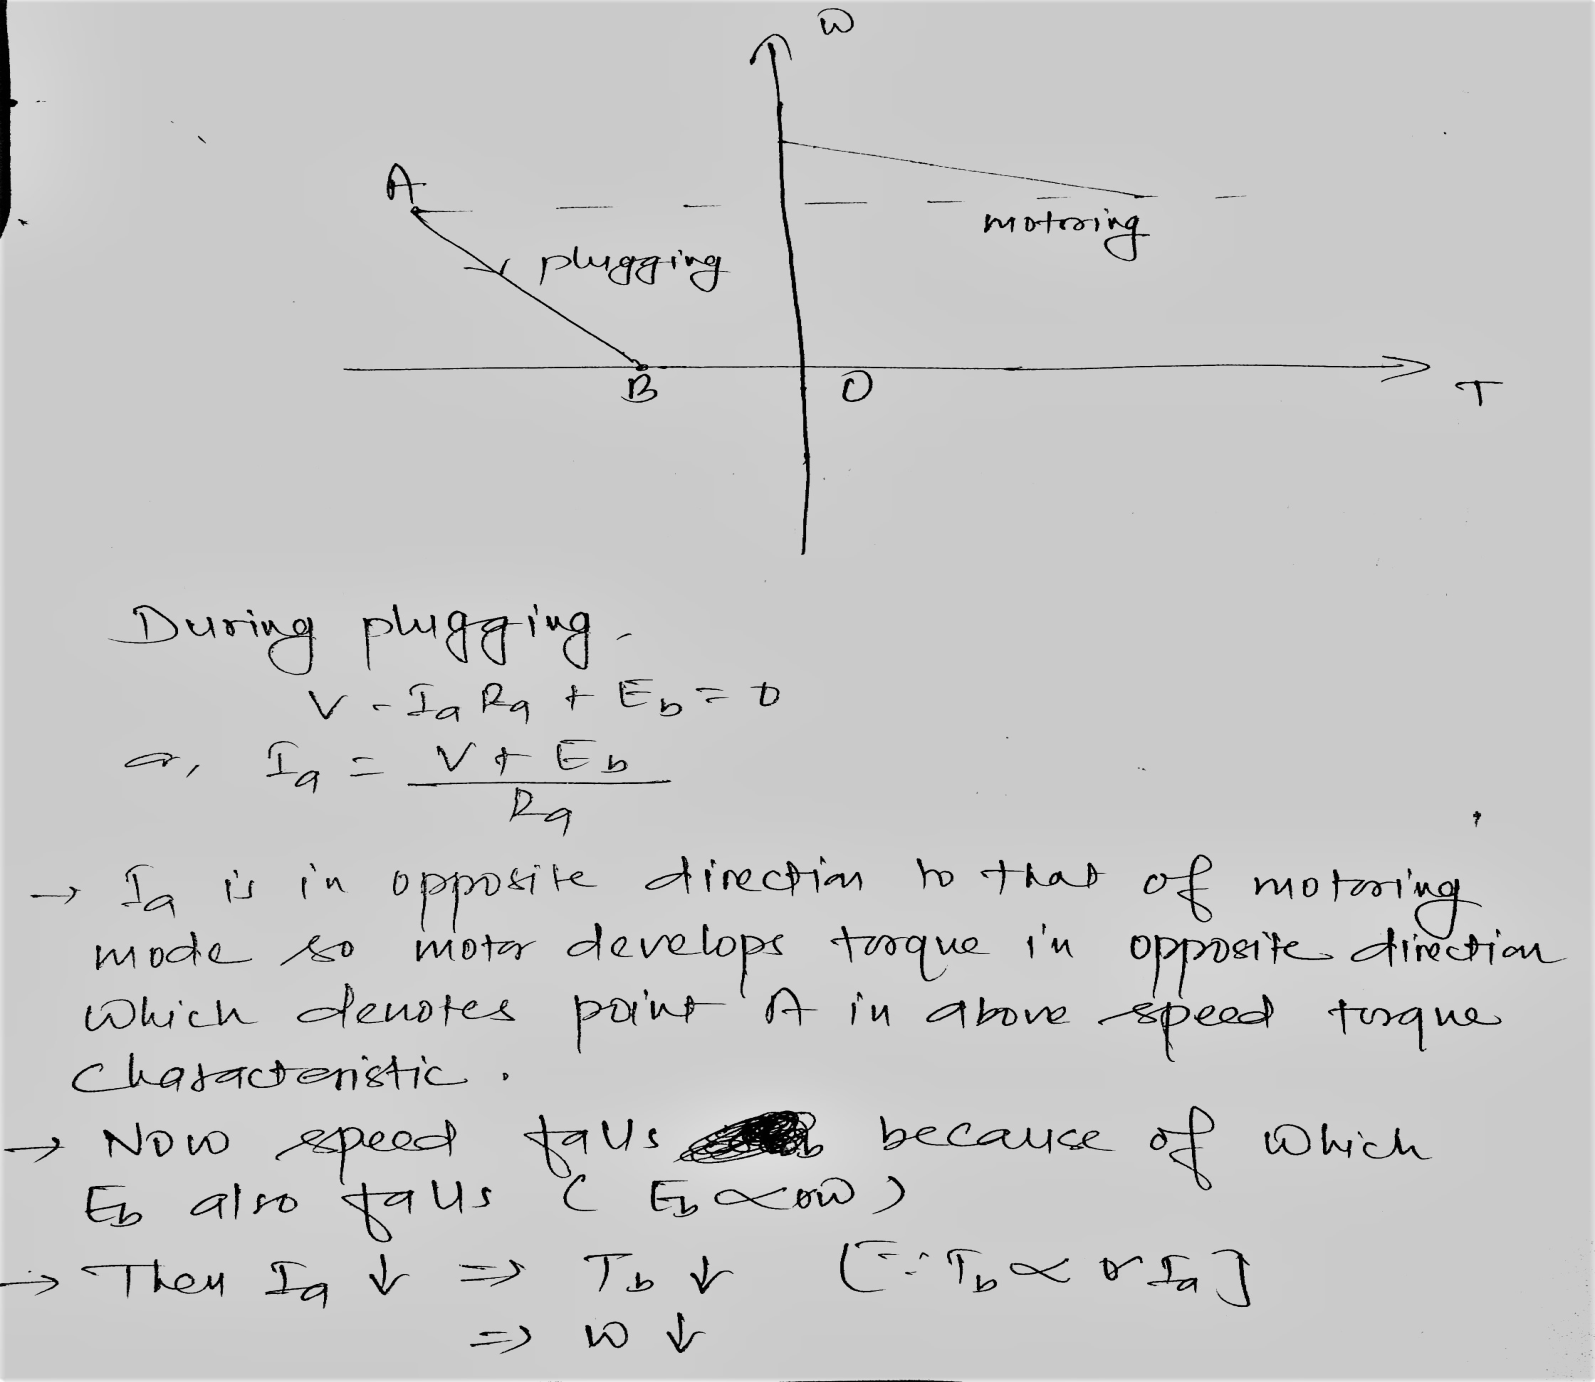 ω
A
motoring
plugging
B
O
T
During plugging -
V - Ia Ra + Eb = 0
or, Ia = V + Eb
Ra
→ Ia is in opposite direction to that of motoring
mode so motor develops torque in opposite direction
which denotes point 'A in above speed torque
Characteristic .
→ Now speed falls because of which
Eb also falls ( Eb ∝ ω )
→ Then Ia ↓ ⇒ Tb ↓ [∵ Tb ∝ Ia ]
⇒ ω ↓